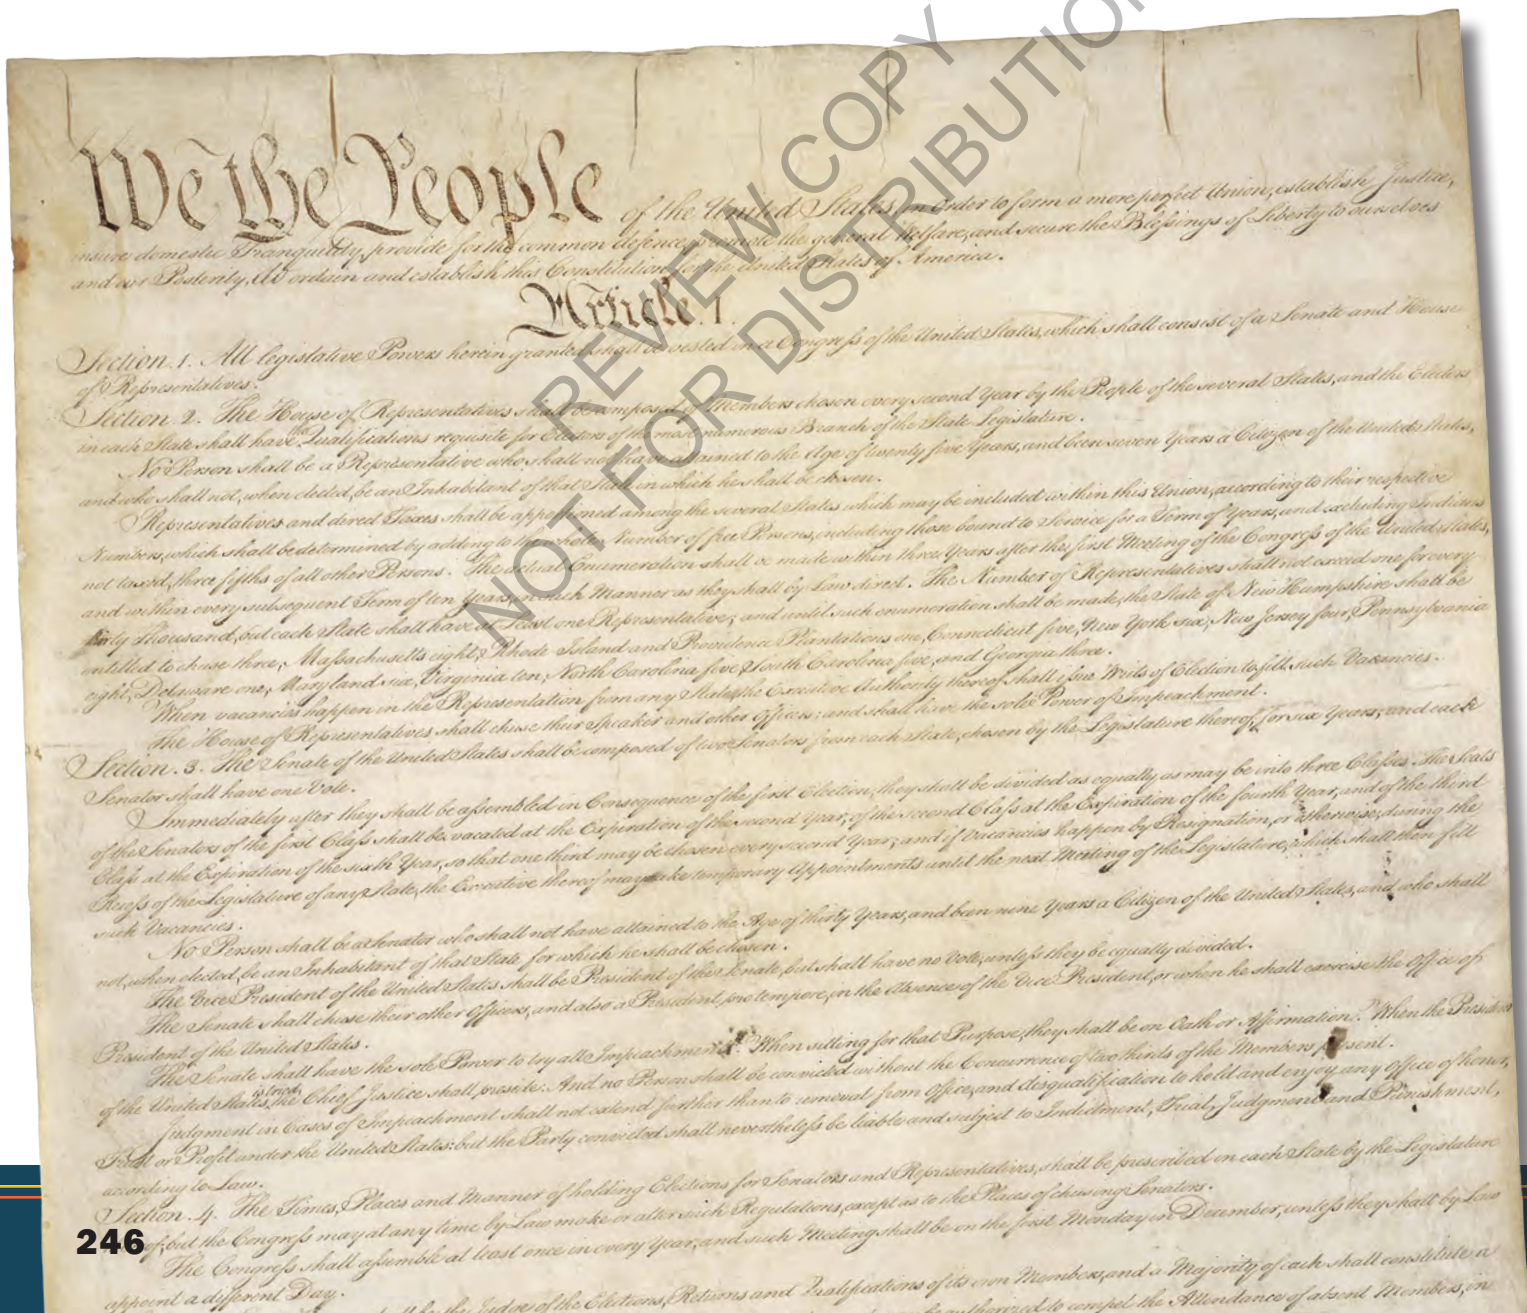 We the People of the United States, in Order to form a more perfect Union, establish Justice,
insure domestic Tranquility, provide for the common defence, promote the general Welfare, and secure the Blessings of Liberty to ourselves
and our Posterity, do ordain and establish this Constitution for the United States of America.
Article. I.
Section. 1. All legislative Powers herein granted shall be vested in a Congress of the United States, which shall consist of a Senate and House
of Representatives.
Section. 2. The House of Representatives shall be composed of Members chosen every second Year by the People of the several States, and the Electors
in each State shall have the Qualifications requisite for Electors of the most numerous Branch of the State Legislature.
No Person shall be a Representative who shall not have attained to the Age of twenty five Years, and been seven Years a Citizen of the United States,
and who shall not, when elected, be an Inhabitant of that State in which he shall be chosen.
Representatives and direct Taxes shall be apportioned among the several States which may be included within this Union, according to their respective
Numbers, which shall be determined by adding to the whole Number of free Persons, including those bound to Service for a Term of Years, and excluding Indians
not taxed, three fifths of all other Persons. The actual Enumeration shall be made within three Years after the first Meeting of the Congress of the United States,
and within every subsequent Term of ten Years, in such Manner as they shall by Law direct. The Number of Representatives shall not exceed one for every
thirty Thousand, but each State shall have at Least one Representative; and until such enumeration shall be made, the State of New Hampshire shall be
entitled to chuse three, Massachusetts eight, Rhode Island and Providence Plantations one, Connecticut five, New York six, New Jersey four, Pennsylvania
eight, Delaware one, Maryland six, Virginia ten, North Carolina five, South Carolina five, and Georgia three.
When vacancies happen in the Representation from any State, the Executive Authority thereof shall issue Writs of Election to fill such Vacancies.
The House of Representatives shall chuse their Speaker and other Officers; and shall have the sole Power of Impeachment.
Section. 3. The Senate of the United States shall be composed of two Senators from each State, chosen by the Legislature thereof, for six Years; and each
Senator shall have one Vote.
Immediately after they shall be assembled in Consequence of the first Election, they shall be divided as equally as may be into three Classes. The Seats
of the Senators of the first Class shall be vacated at the Expiration of the second Year, of the second Class at the Expiration of the fourth Year, and of the third
Class at the Expiration of the sixth Year, so that one third may be chosen every second Year; and if Vacancies happen by Resignation, or otherwise, during the
Recess of the Legislature of any State, the Executive thereof may make temporary Appointments until the next Meeting of the Legislature, which shall then fill
such Vacancies.
No Person shall be a Senator who shall not have attained to the Age of thirty Years, and been nine Years a Citizen of the United States, and who shall
not, when elected, be an Inhabitant of that State for which he shall be chosen.
The Vice President of the United States shall be President of the Senate, but shall have no Vote, unless they be equally divided.
The Senate shall chuse their other Officers, and also a President pro tempore, in the Absence of the Vice President, or when he shall exercise the Office of
President of the United States.
The Senate shall have the sole Power to try all Impeachments. When sitting for that Purpose, they shall be on Oath or Affirmation. When the President
of the United States is tried, the Chief Justice shall preside: And no Person shall be convicted without the Concurrence of two thirds of the Members present.
Judgment in Cases of Impeachment shall not extend further than to removal from Office, and disqualification to hold and enjoy any Office of honor,
Trust or Profit under the United States: but the Party convicted shall nevertheless be liable and subject to Indictment, Trial, Judgment and Punishment,
according to Law.
Section. 4. The Times, Places and Manner of holding Elections for Senators and Representatives, shall be prescribed in each State by the Legislature
of; but the Congress may at any time by Law make or alter such Regulations, except as to the Places of chusing Senators.
The Congress shall assemble at least once in every Year, and such Meeting shall be on the first Monday in December, unless they shall by Law
appoint a different Day.
be the Judge of the Elections, Returns and Qualifications of its own Members, and a Majority of each shall constitute a
be authorized to compel the Attendance of absent Members, in
246
REVIEW COPY
NOT FOR DISTRIBUTION